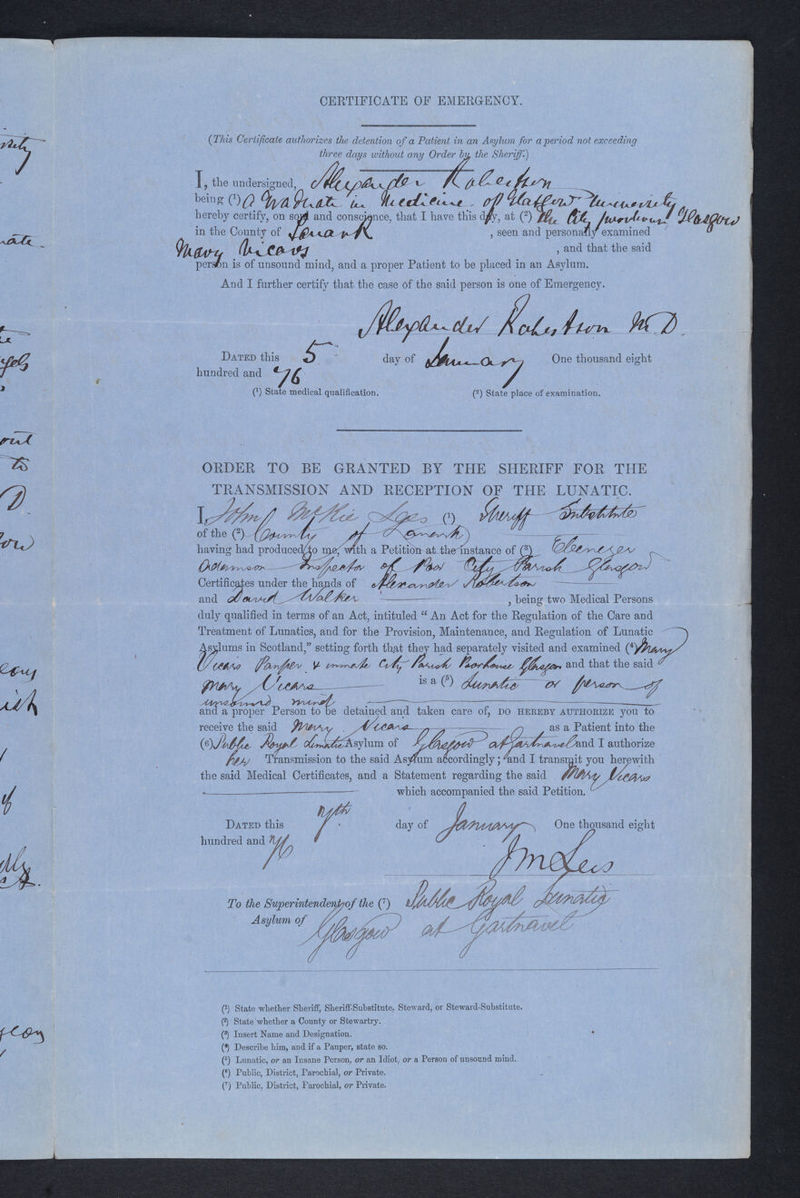 CERTIFICATE OF EMERGENCY.
(This Certificate authorizes the detention of a Patient in an Asylum for a period not exceeding
three days without any Order by the Sheriff.)
I, the undersigned, Alexander Robertson
being (1) a Graduate in Medicine of Glasgow University
hereby certify, on soul and conscience, that I have this day, at (2) the City poorhouse Glasgow
in the County of Lanark, seen and personally examined
Mary Vicars, and that the said
person is of unsound mind, and a proper Patient to be placed in an Asylum.
And I further certify that the case of the said person is one of Emergency.
Alexander Robertson M.D.
DATED this 5 day of January One thousand eight
hundred and 76
(1) State medical qualification. (2) State place of examination.
ORDER TO BE GRANTED BY THE SHERIFF FOR THE
TRANSMISSION AND RECEPTION OF THE LUNATIC.
I, John McKie Lees (1) Sheriff Substitute
of the (2) County of Lanark
having had produced to me, with a Petition at the instance of (3) Ebenezer
Adamson Inspector of Poor City Parish Glasgow
Certificates under the hands of Alexander Robertson
and David Walker, being two Medical Persons
duly qualified in terms of an Act, intituled "An Act for the Regulation of the Care and
Treatment of Lunatics, and for the Provision, Maintenance, and Regulation of Lunatic
Asylums in Scotland," setting forth that they had separately visited and examined (4) Mary
Vicars Pauper & inmate City Parish Poorhouse Glasgow and that the said
Mary Vicars is a (5) Lunatic or person of
unsound mind
and a proper Person to be detained and taken care of, DO HEREBY AUTHORIZE you to
receive the said Mary Vicars as a Patient into the
(6) Public Royal Lunatic Asylum of Glasgow at Gartnavel and I authorize
her Transmission to the said Asylum accordingly; and I transmit you herewith
the said Medical Certificates, and a Statement regarding the said Mary Vicars
which accompanied the said Petition.
DATED this 7th day of January One thousand eight
hundred and 76
J M Lees
To the Superintendent of the (7) Public Royal Lunatic
Asylum of Glasgow at Gartnavel
(1) State whether Sheriff, Sheriff-Substitute, Steward, or Steward-Substitute.
(2) State whether a County or Stewartry.
(3) Insert Name and Designation.
(4) Describe him, and if a Pauper, state so.
(5) Lunatic, or an Insane Person, or an Idiot, or a Person of unsound mind.
(6) Public, District, Parochial, or Private.
(7) Public, District, Parochial, or Private.